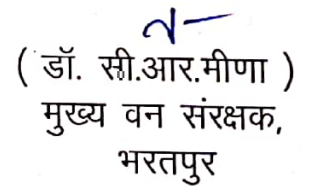 ( डॉ. सी.आर.मीणा )
मुख्य वन संरक्षक,
भरतपुर